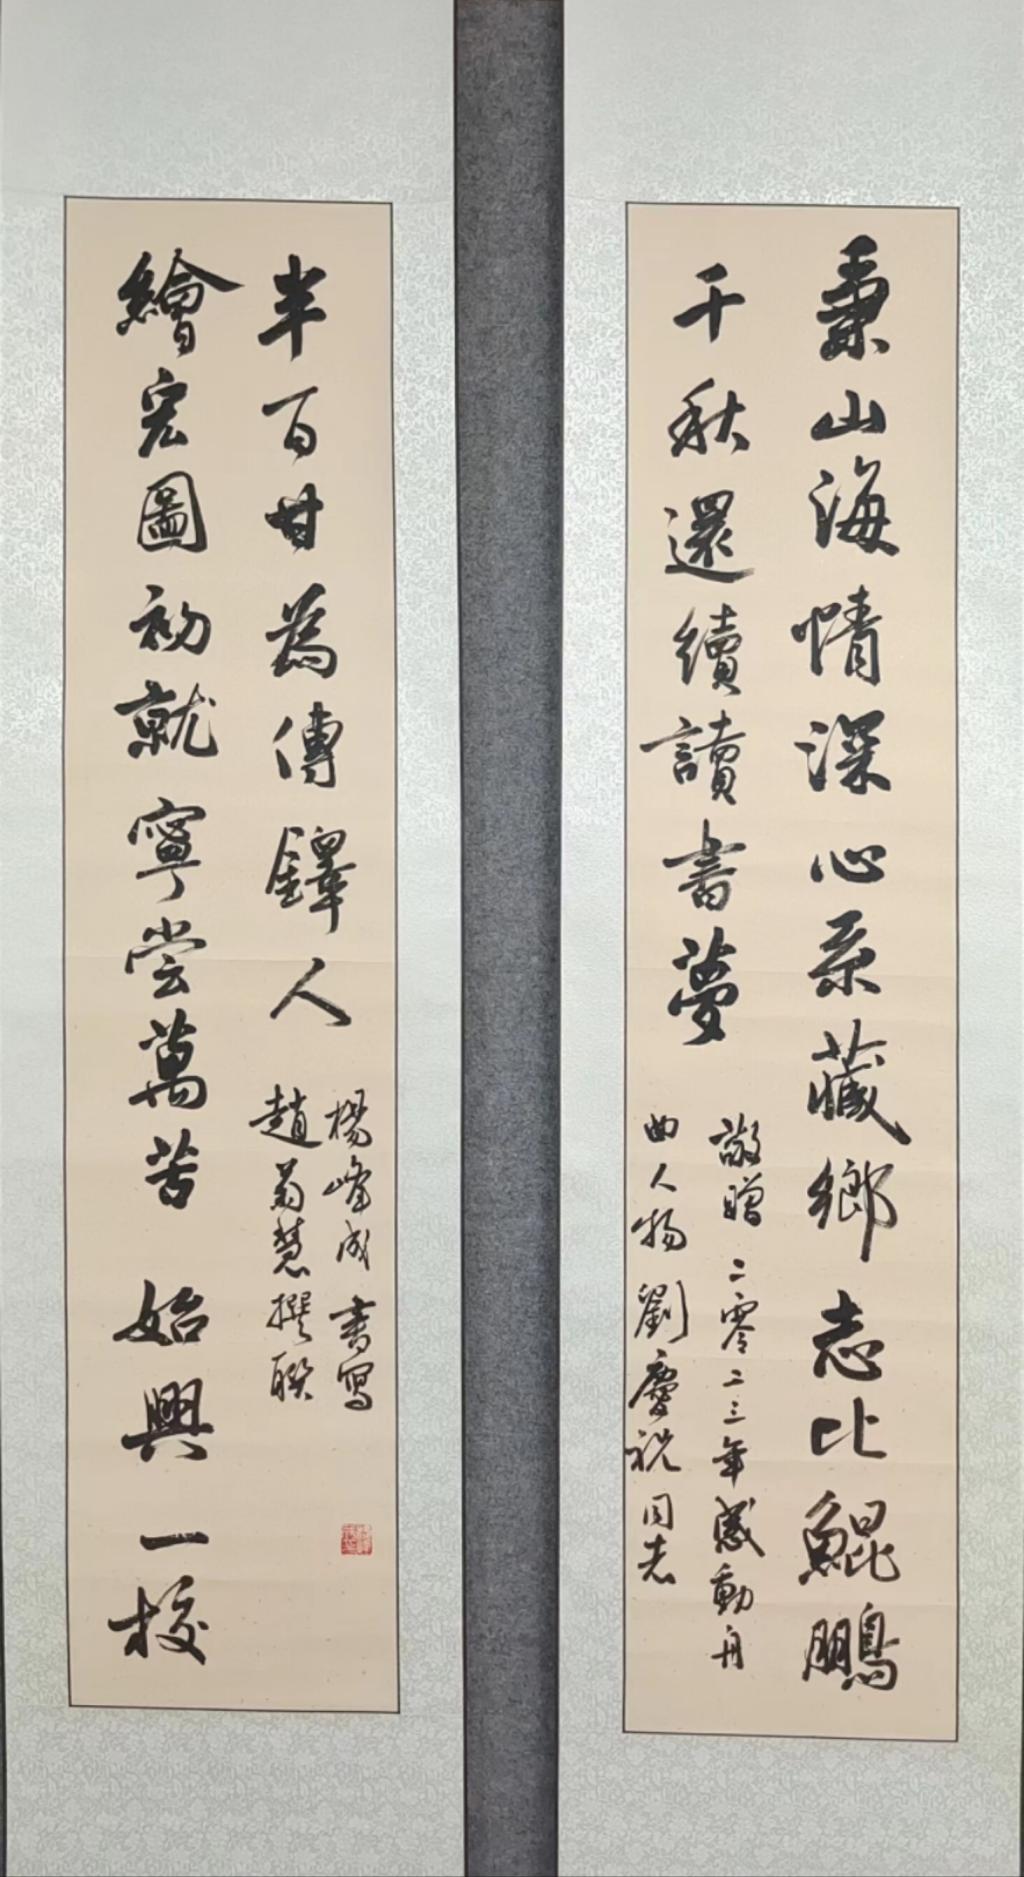 秉山海情深心系藏鄉志比鯤鵬
千秋還續讀書夢
敬贈二零二三年感動舟
曲人物劉慶祝同志
繪宏圖初就寧嘗萬苦始興一校
半百甘為傳鐸人
楊峰成書寫
趙菊慧撰聯